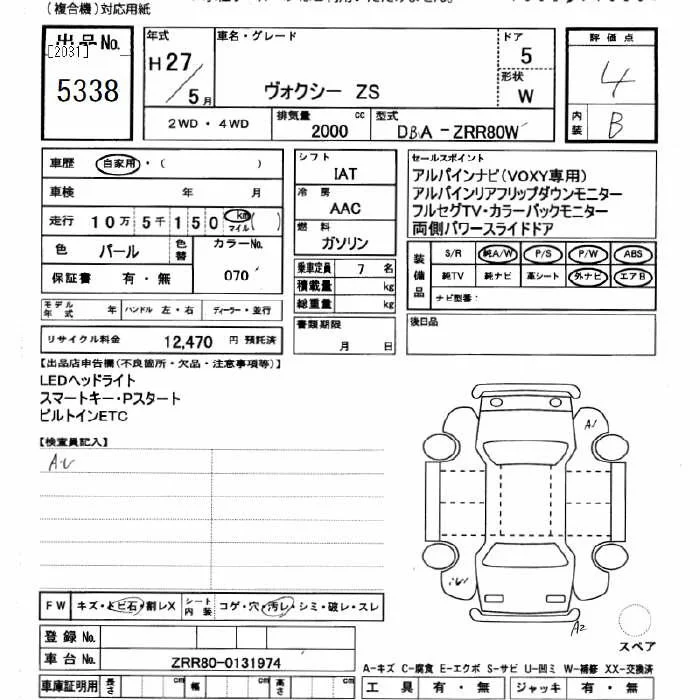 (複合機)対応用紙
出品No.
[2031]
5338
年式
H27/5月
車名・グレード
ヴォクシー ZS
ドア
5
形状
W
評価点
4
内装
B
2WD・4WD
排気量
2000 cc
型式
DBA-ZRR80W
車歴 自家用・( )
車検 年 月
走行 10万5千150 km マイル( )
色 パール
色替
カラーNo.
070
保証書 有・無
モデル年式 年 ハンドル 左・右 ディーラー・並行
リサイクル料金 12,470 円 預託済
シフト
IAT
冷房
AAC
燃料
ガソリン
乗車定員 7 名
積載量 kg
総重量 kg
書類期限
月 日
セールスポイント
アルパインナビ(VOXY専用)
アルパインリアフリップダウンモニター
フルセグTV・カラーバックモニター
両側パワースライドドア
装備品
S/R 純A/W P/S P/W ABS
純TV 純ナビ 革シート 外ナビ エアB
ナビ型番:
後日品
【出品店申告欄(不良箇所・欠品・注意事項等)】
LEDヘッドライト
スマートキー・Pスタート
ビルトインETC
【検査員記入】
A1
A2
FW キズ・トビ石・割レX
シート内装 コゲ・穴・汚レ・シミ・破レ・スレ
登録No.
車台No. ZRR80-0131974
車庫証明用 長さ cm 幅 cm 高さ cm
スペア
A-キズ C-腐食 E-エクボ S-サビ U-凹ミ W-補修 XX-交換済
工具 有・無 ジャッキ 有・無